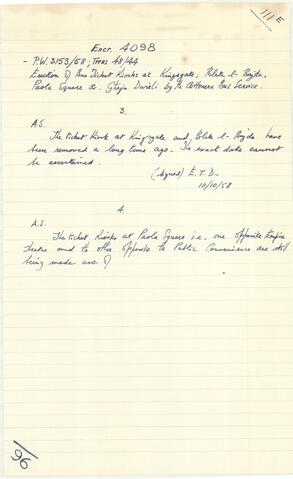 111E
Encr. 4098
- P.W. 3153/58; Treas 48/44
Erection of Bus Ticket Kiosks at Kingsgate, Blata l-Bajda,
Paola Square & Ghajn Dwieli by the Cottonera Bus Service.
3.
A.S.
The ticket kiosk at Kingsgate and, Blata l-Bajda have
been removed a long time ago. The exact date cannot
be ascertained.
(signed) E.T.D.
10/10/58
4.
A.S.
The ticket kiosks at Paola Square i.e. one opposite Empire
Theatre and the other opposite to Public Convenience are still
being made use of
96